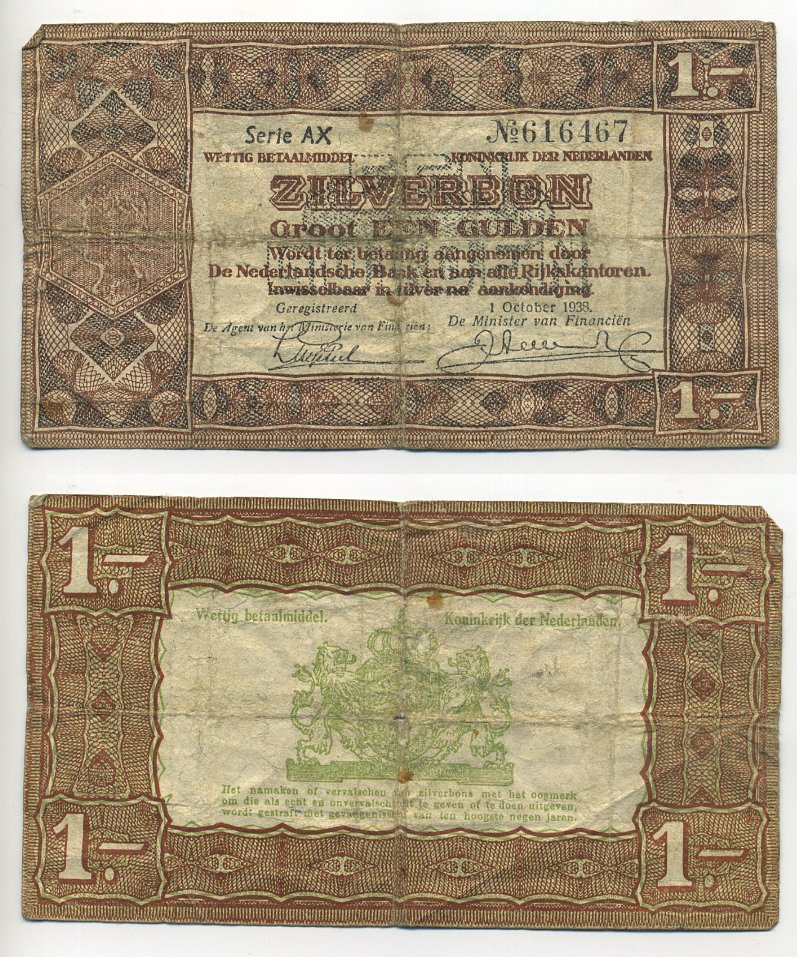 1.-
Serie AX № 616467
WETTIG BETAALMIDDEL KONINKRIJK DER NEDERLANDEN
ZILVERBON
Groot EEN GULDEN
Wordt ter betaling aangenomen door
De Nederlandsche Bank en aan alle Rijkskantoren.
Inwisselbaar in zilver na aankondiging
Geregistreerd 1 October 1938.
De Agent van het Ministerie van Financiën: De Minister van Financiën
1.-
1.- 1.-
Wettig betaalmiddel. Koninkrijk der Nederlanden.
Het namaken of vervalschen van zilverbons met het oogmerk
om die als echt en onvervalscht uit te geven of te doen uitgeven,
wordt gestraft met gevangenisstraf van ten hoogste negen jaren.
1.- 1.-